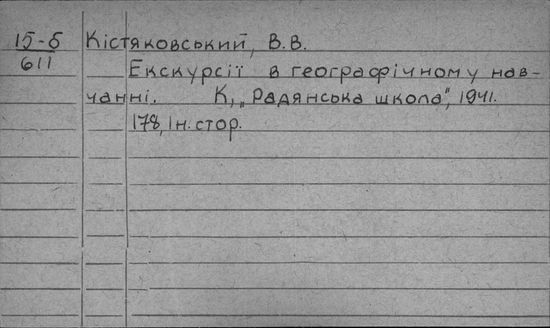 15-б Кістяковський, В.В.
611 Екскурсії в географічному нав-
чанні. К, „Радянська школа", 1941.
178, Ін. стор.